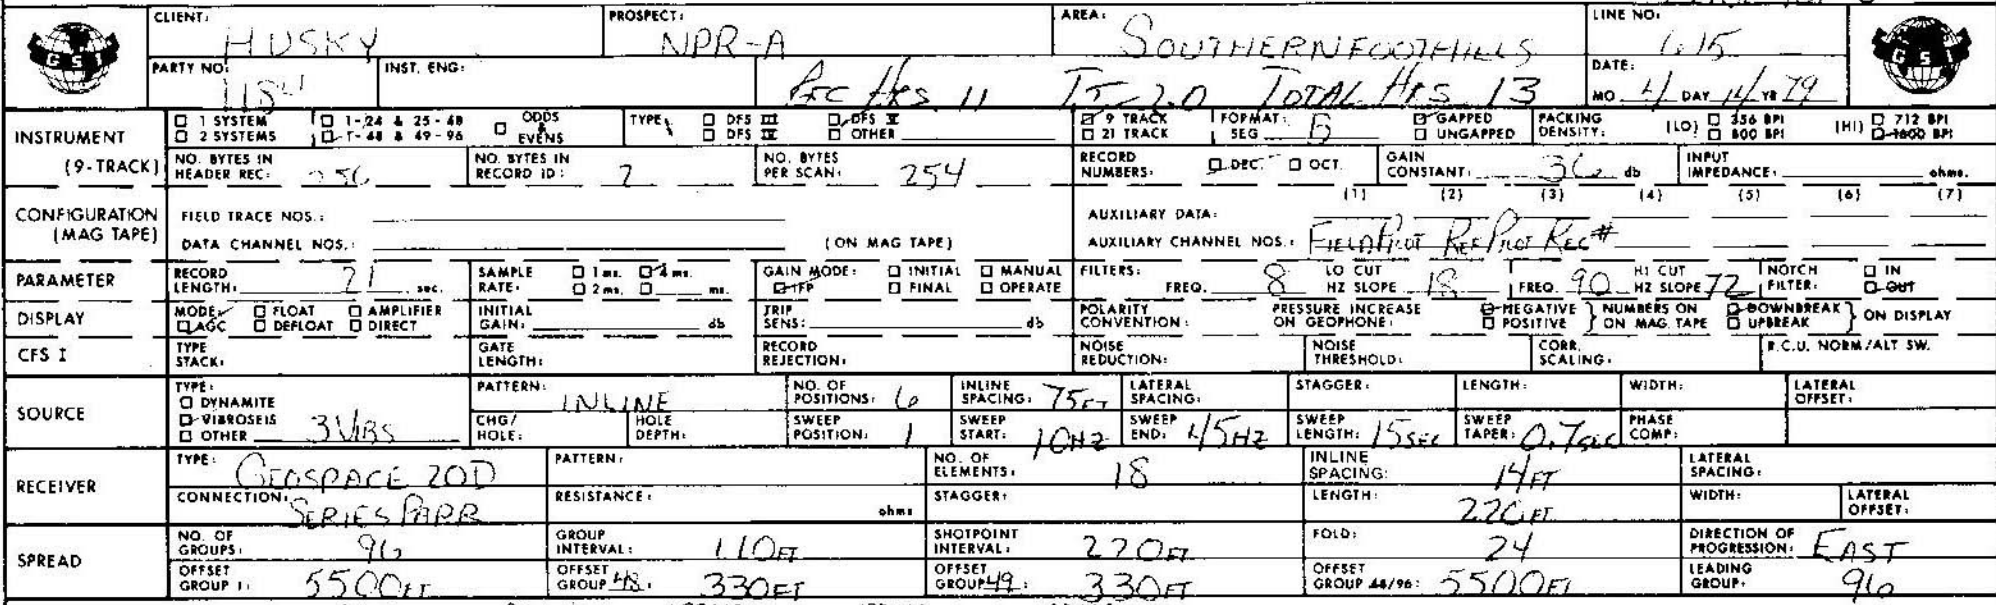 CLIENT: HUSKY PROSPECT: NPR-A AREA: SOUTHERN FOOTHILLS LINE NO: 615
GSI GSI
PARTY NO: 1184 INST. ENG: REC HRS 11 TT 2.0 TOTAL HRS 13 DATE: MO. 4 DAY 14 YR 79
INSTRUMENT (9-TRACK)
□ 1 SYSTEM □ 1-24 & 25-48 □ ODDS & EVENS TYPE: □ DFS III □ DFS V □ 9 TRACK FORMAT: □ GAPPED PACKING DENSITY: (LO) □ 356 BPI (HI) □ 712 BPI
□ 2 SYSTEMS □ 1-48 & 49-96 □ DFS IV □ OTHER □ 21 TRACK SEG B □ UNGAPPED □ 800 BPI □ 1600 BPI
NO. BYTES IN HEADER REC: 256 NO. BYTES IN RECORD ID: 2 NO. BYTES PER SCAN: 254 RECORD NUMBERS: □ DEC. □ OCT. GAIN CONSTANT: 36 db INPUT IMPEDANCE: ohms.
CONFIGURATION (MAG TAPE)
(1) (2) (3) (4) (5) (6) (7)
FIELD TRACE NOS.: AUXILIARY DATA:
DATA CHANNEL NOS.: (ON MAG TAPE) AUXILIARY CHANNEL NOS.: FIELD PILOT REF PILOT REC#
PARAMETER
RECORD LENGTH: 21 sec. SAMPLE RATE: □ 1 ms. □ 4 ms. □ 2 ms. □ ms. GAIN MODE: □ INITIAL □ MANUAL □ IFP □ FINAL □ OPERATE FILTERS: FREQ. 8 LO CUT HZ SLOPE 18 FREQ. 90 HI CUT HZ SLOPE 72 NOTCH FILTER: □ IN □ OUT
DISPLAY
MODE: □ FLOAT □ AMPLIFIER □ AGC □ DEFLOAT □ DIRECT INITIAL GAIN: db TRIP SENS: db POLARITY CONVENTION: PRESSURE INCREASE ON GEOPHONE: □ NEGATIVE □ POSITIVE } NUMBERS ON MAG TAPE □ DOWNBREAK □ UPBREAK } ON DISPLAY
CFS I TYPE STACK: GATE LENGTH: RECORD REJECTION: NOISE REDUCTION: NOISE THRESHOLD: CORR. SCALING: R.C.U. NORM/ALT SW.
SOURCE
TYPE: □ DYNAMITE □ VIBROSEIS □ OTHER 3 VIBS PATTERN: INLINE NO. OF POSITIONS: 6 INLINE SPACING: 75FT LATERAL SPACING: STAGGER: LENGTH: WIDTH: LATERAL OFFSET:
CHG/HOLE: HOLE DEPTH: SWEEP POSITION: 1 SWEEP START: 10HZ SWEEP END: 45HZ SWEEP LENGTH: 15SEC SWEEP TAPER: 0.7SEC PHASE COMP:
RECEIVER
TYPE: GEOSPACE 20D PATTERN: NO. OF ELEMENTS: 18 INLINE SPACING: 14FT LATERAL SPACING:
CONNECTION: SERIES PARR RESISTANCE: ohms STAGGER: LENGTH: 220FT WIDTH: LATERAL OFFSET:
SPREAD
NO. OF GROUPS: 96 GROUP INTERVAL: 110FT SHOTPOINT INTERVAL: 220FT FOLD: 24 DIRECTION OF PROGRESSION: EAST
OFFSET GROUP 1: 5500FT OFFSET GROUP 48: 330FT OFFSET GROUP 49: 330FT OFFSET GROUP 48/96: 5500FT LEADING GROUP: 96